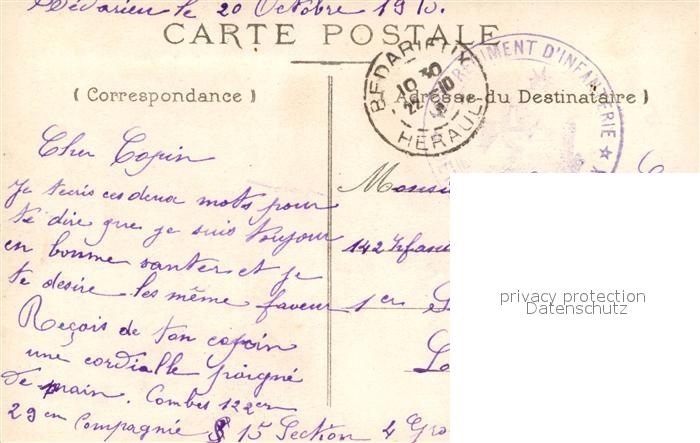 Bédarieux le 20 Octobre 191
CARTE POSTALE
( Correspondance )
Adresse du Destinataire )
BEDARIEUX
10 30
22 -10
HERAULT
REGIMENT D'INFANTERIE ★
Cher Copin
Je tecris ces deux mots pour
te dire que je suis toujour
en bonne santer et je
te desire les même faveur
Reçois de ton copin
une cordialle poigné
de main. Combes 122em
29em Compagnie 15 Section 4 Gro
142 Infan
1er
privacy protection
Datenschutz